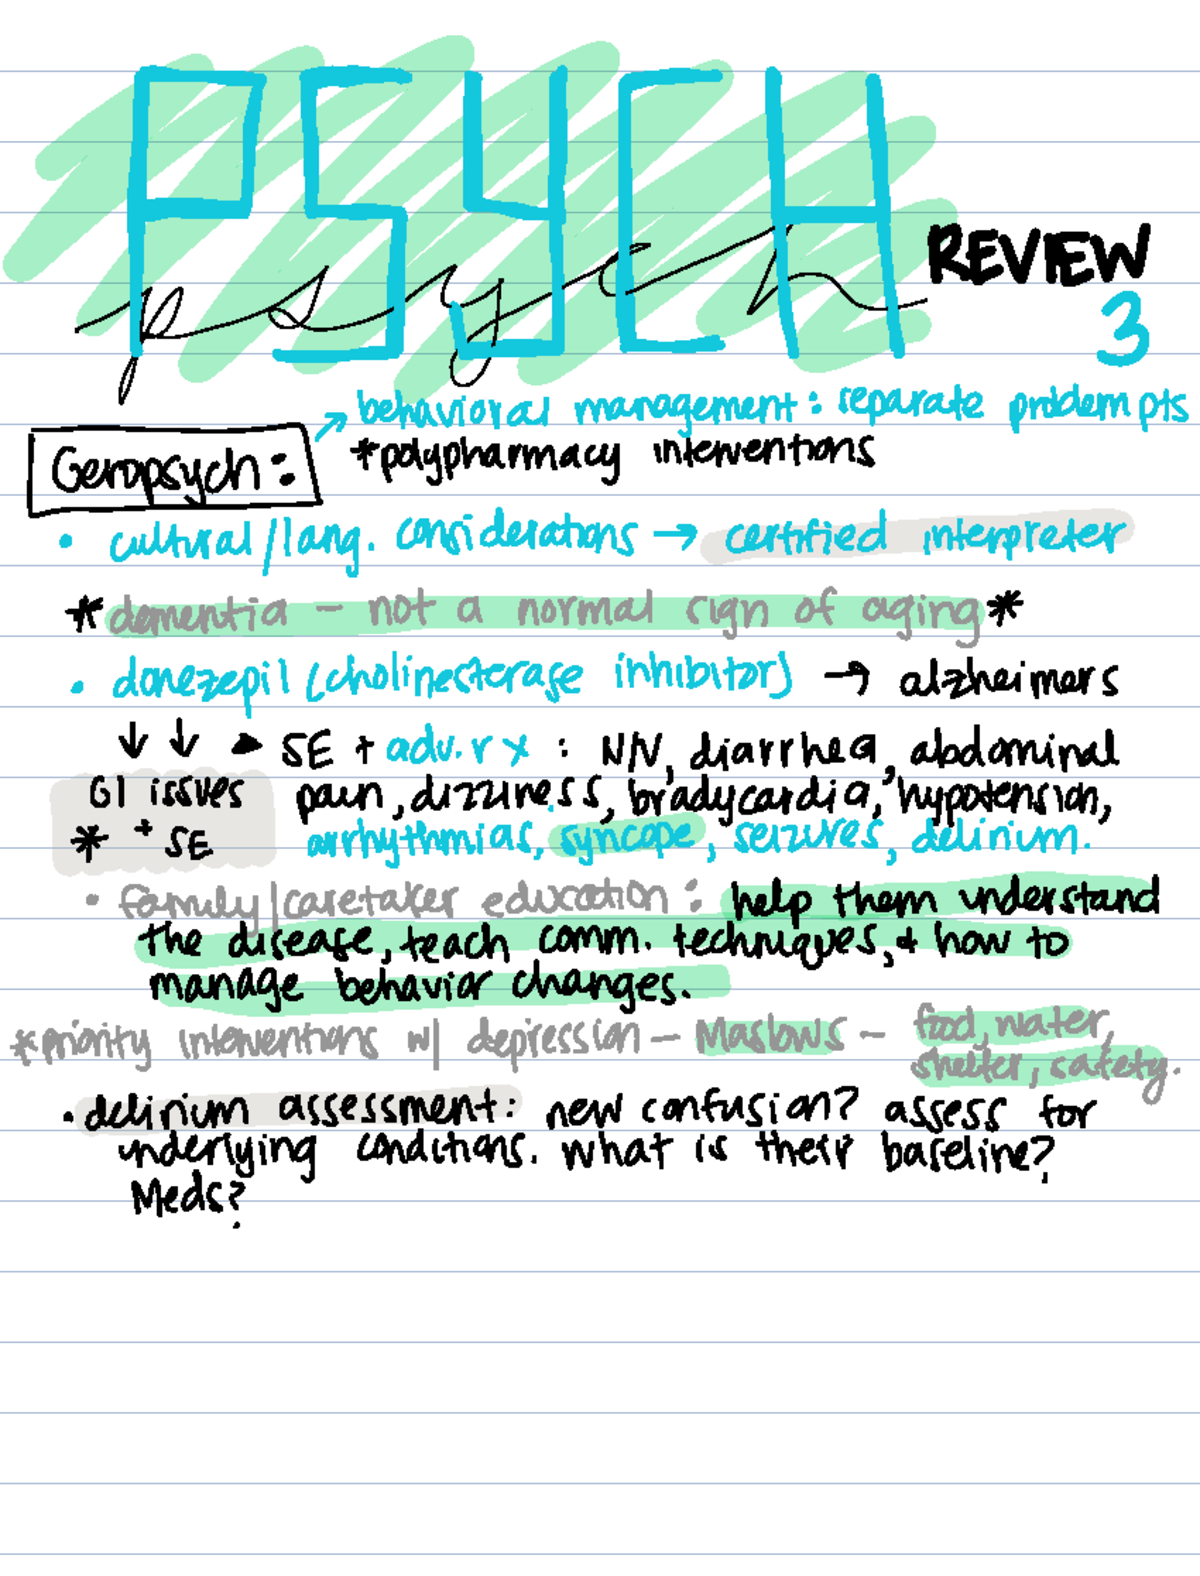 PSYCH
psych
REVIEW
3
behavioral management: separate problem pts
Geropsych:
*polypharmacy interventions
• cultural/lang. considerations → certified interpreter
* dementia - not a normal sign of aging *
• donezepil (cholinesterase inhibitor) → alzheimers
↓ ↓ ▶ SE + adv. rx : N/V, diarrhea, abdominal
GI issues pain, dizziness, bradycardia, hypotension,
* + SE arrhythmias, syncope, seizures, delirium.
• family/caretaker education: help them understand
the disease, teach comm. techniques, & how to
manage behavior changes.
*priority interventions w/ depression - Maslows - food, water,
shelter, safety.
• delirium assessment: new confusion? assess for
underlying conditions. What is their baseline?
Meds?